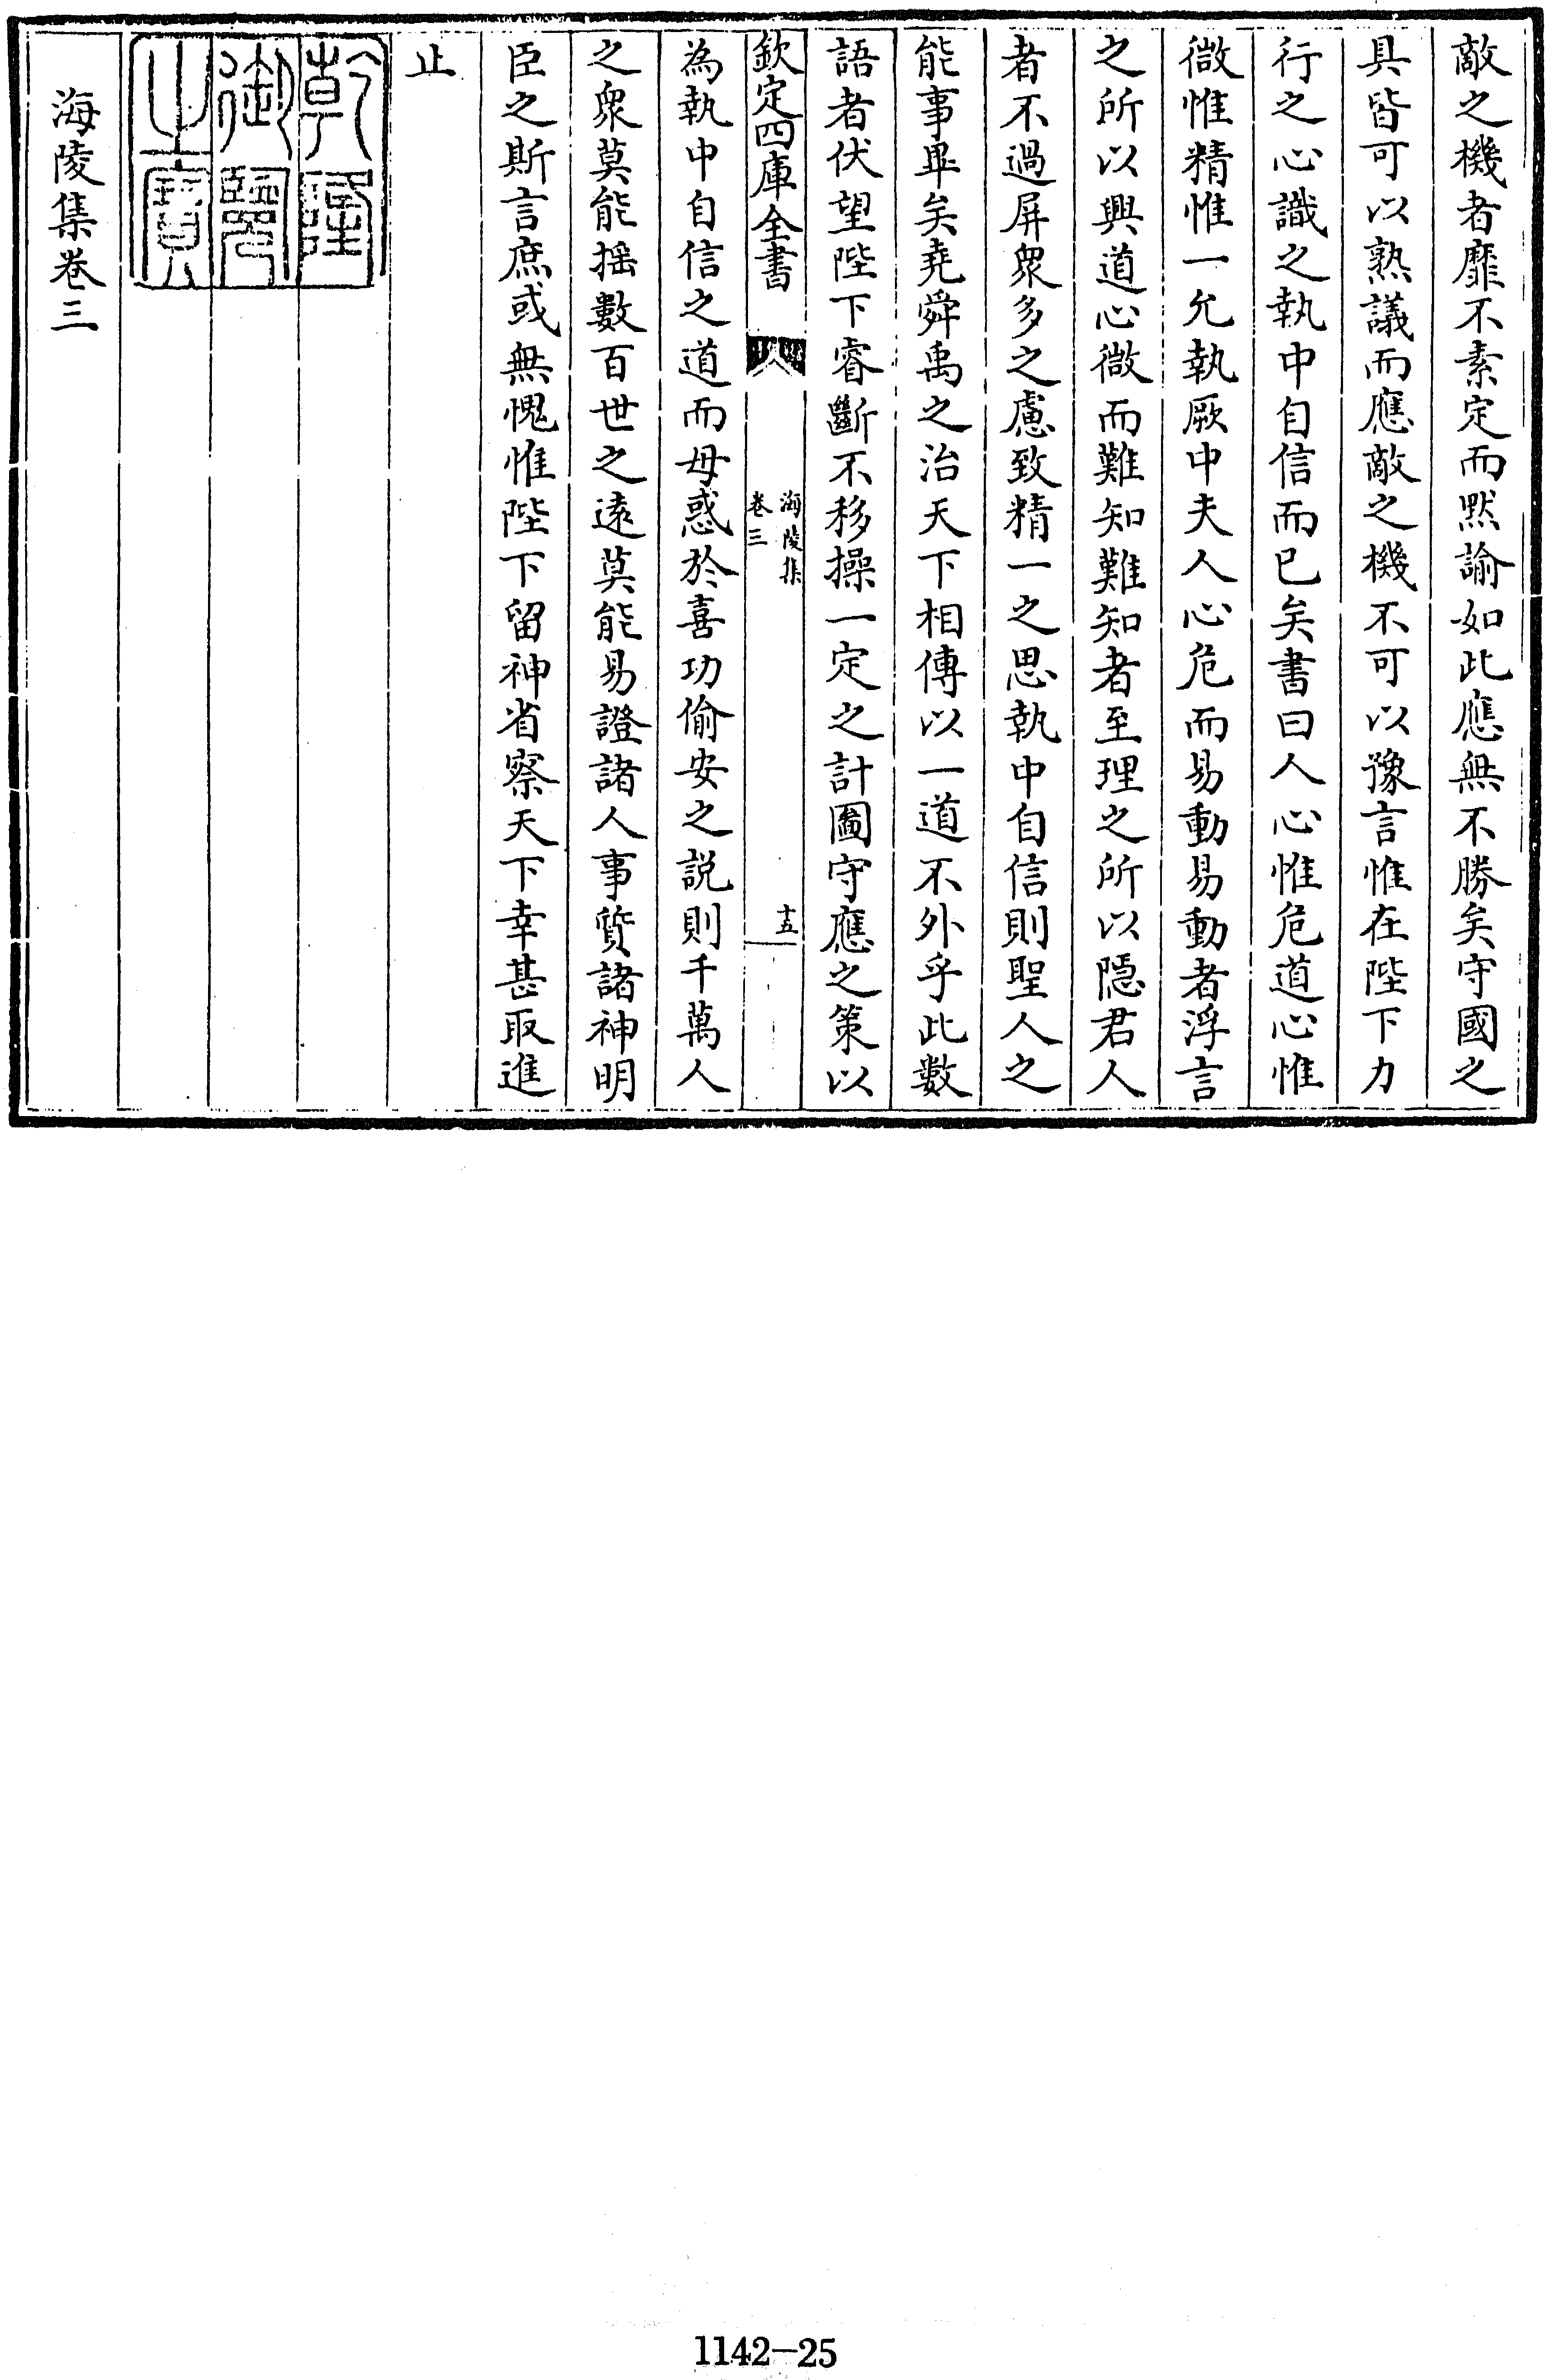 敵之機者靡不素定而黙諭如此應無不勝矣守國之
具皆可以熟議而應敵之機不可以豫言惟在陛下力
行之心識之執中自信而已矣書曰人心惟危道心惟
微惟精惟一允執厥中夫人心危而易動易動者浮言
之所以興道心微而難知難知者至理之所以隱君人
者不過屏衆多之慮致精一之思執中自信則聖人之
能事畢矣堯舜禹之治天下相傳以一道不外乎此數
語者伏望陛下睿斷不移操一定之計圖守應之策以
欽定四庫全書
海陵集
卷三
十五
為執中自信之道而毋惑於喜功偷安之説則千萬人
之衆莫能揺數百世之遠莫能易證諸人事質諸神明
臣之斯言庶或無愧惟陛下留神省察天下幸甚取進
止
乾隆
御覽
之寳
海陵集卷三
1142-25